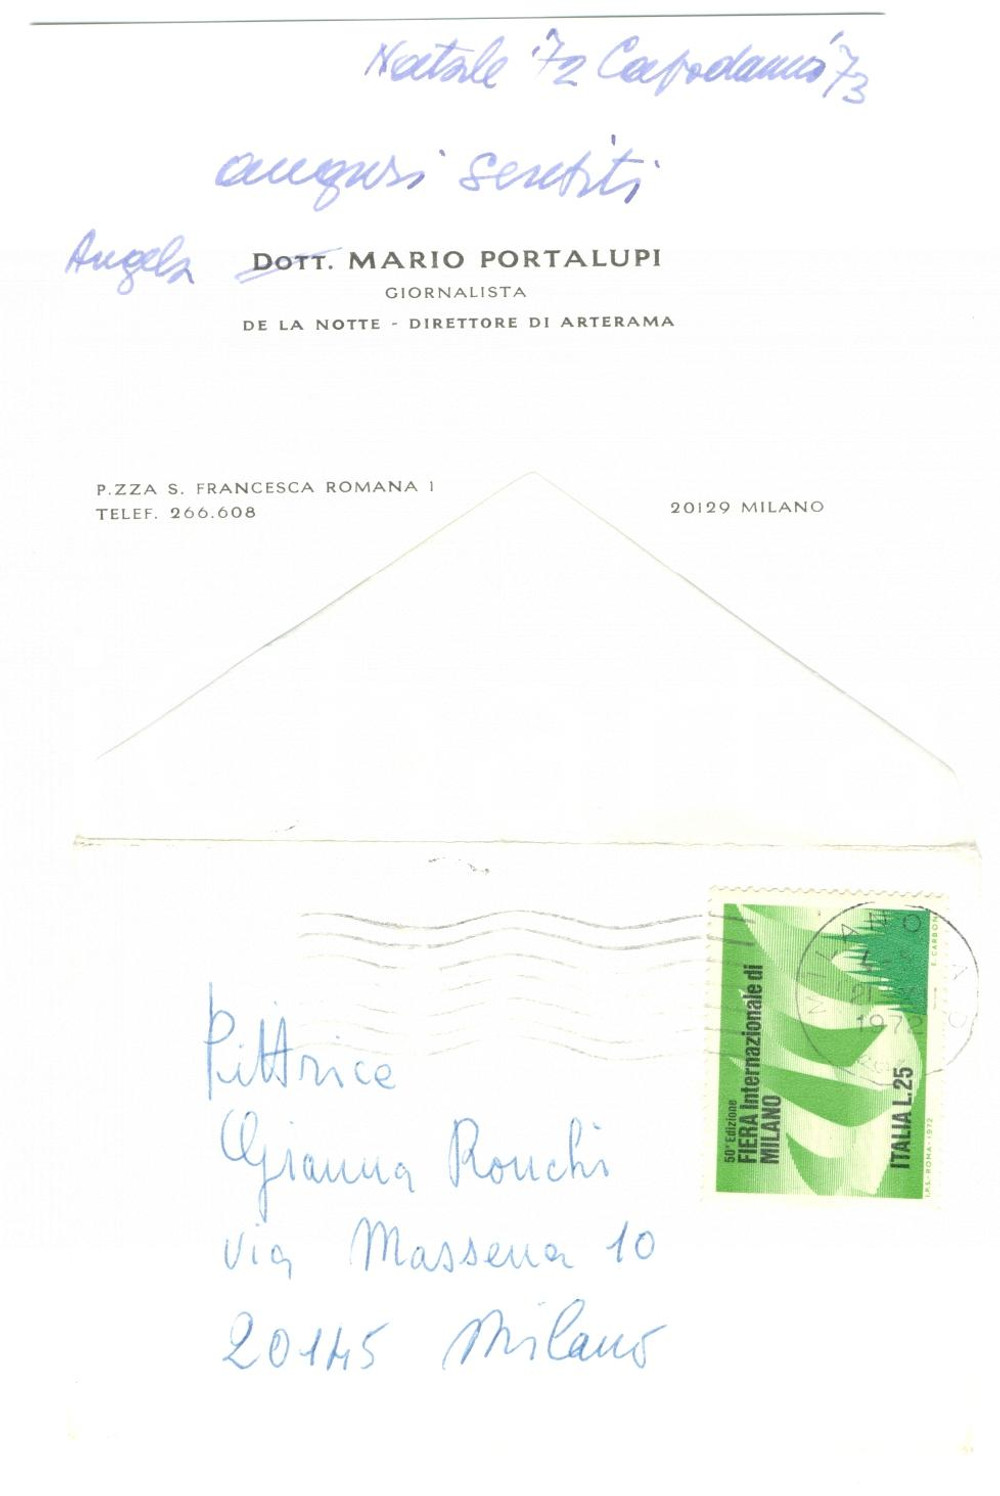 Natale '72 Capodanno '73
auguri sentiti
Angela Dott. MARIO PORTALUPI
GIORNALISTA
DE LA NOTTE - DIRETTORE DI ARTERAMA
P.ZZA S. FRANCESCA ROMANA 1
TELEF. 266.608
20129 MILANO
MILANO
21
1972
50ª Edizione
FIERA Internazionale di
MILANO
ITALIA L.25
I.P.S.-ROMA-1972
E. CARBONI
Pittrice
Gianna Ronchi
via Massena 10
20145 Milano